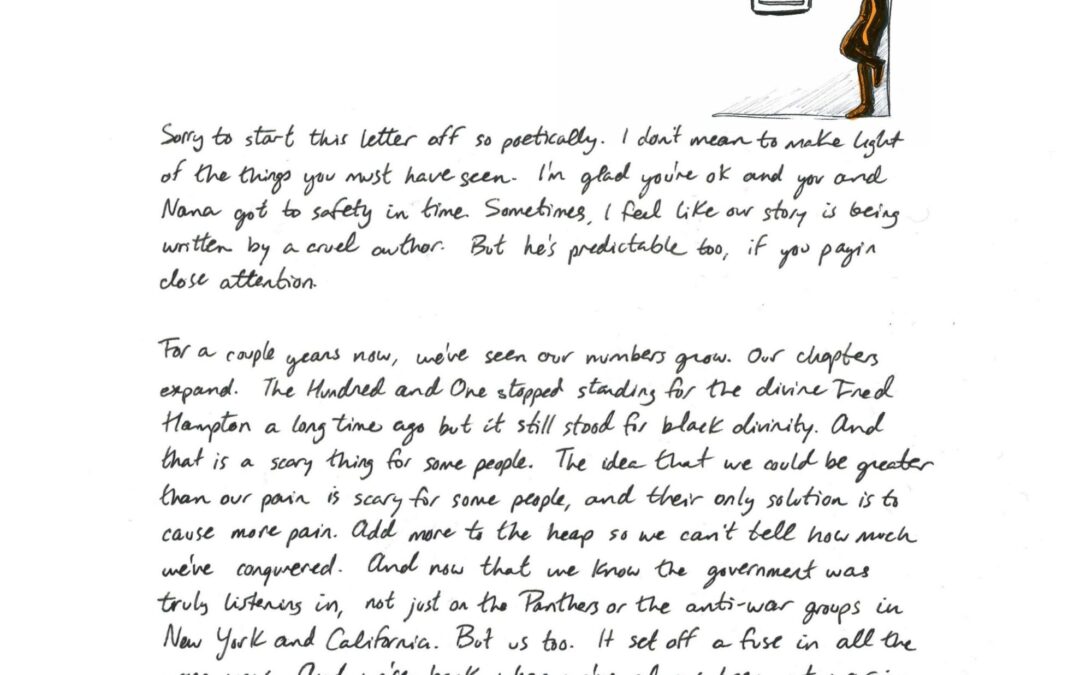 Sorry to start this letter off so poetically. I don't mean to make light
of the things you must have seen. I'm glad you're ok and you and
Nana got to safety in time. Sometimes, I feel like our story is being
written by a cruel author. But he's predictable too, if you payin
close attention.
For a couple years now, we've seen our numbers grow. Our chapters
expand. The Hundred and One stopped standing for the divine Fred
Hampton a long time ago but it still stood for black divinity. And
that is a scary thing for some people. The idea that we could be greater
than our pain is scary for some people, and their only solution is to
cause more pain. Add more to the heap so we can't tell how much
we've conquered. And now that we know the government was
truly listening in, not just on the Panthers or the anti-war groups in
New York and California. But us too. It set off a fuse in all the